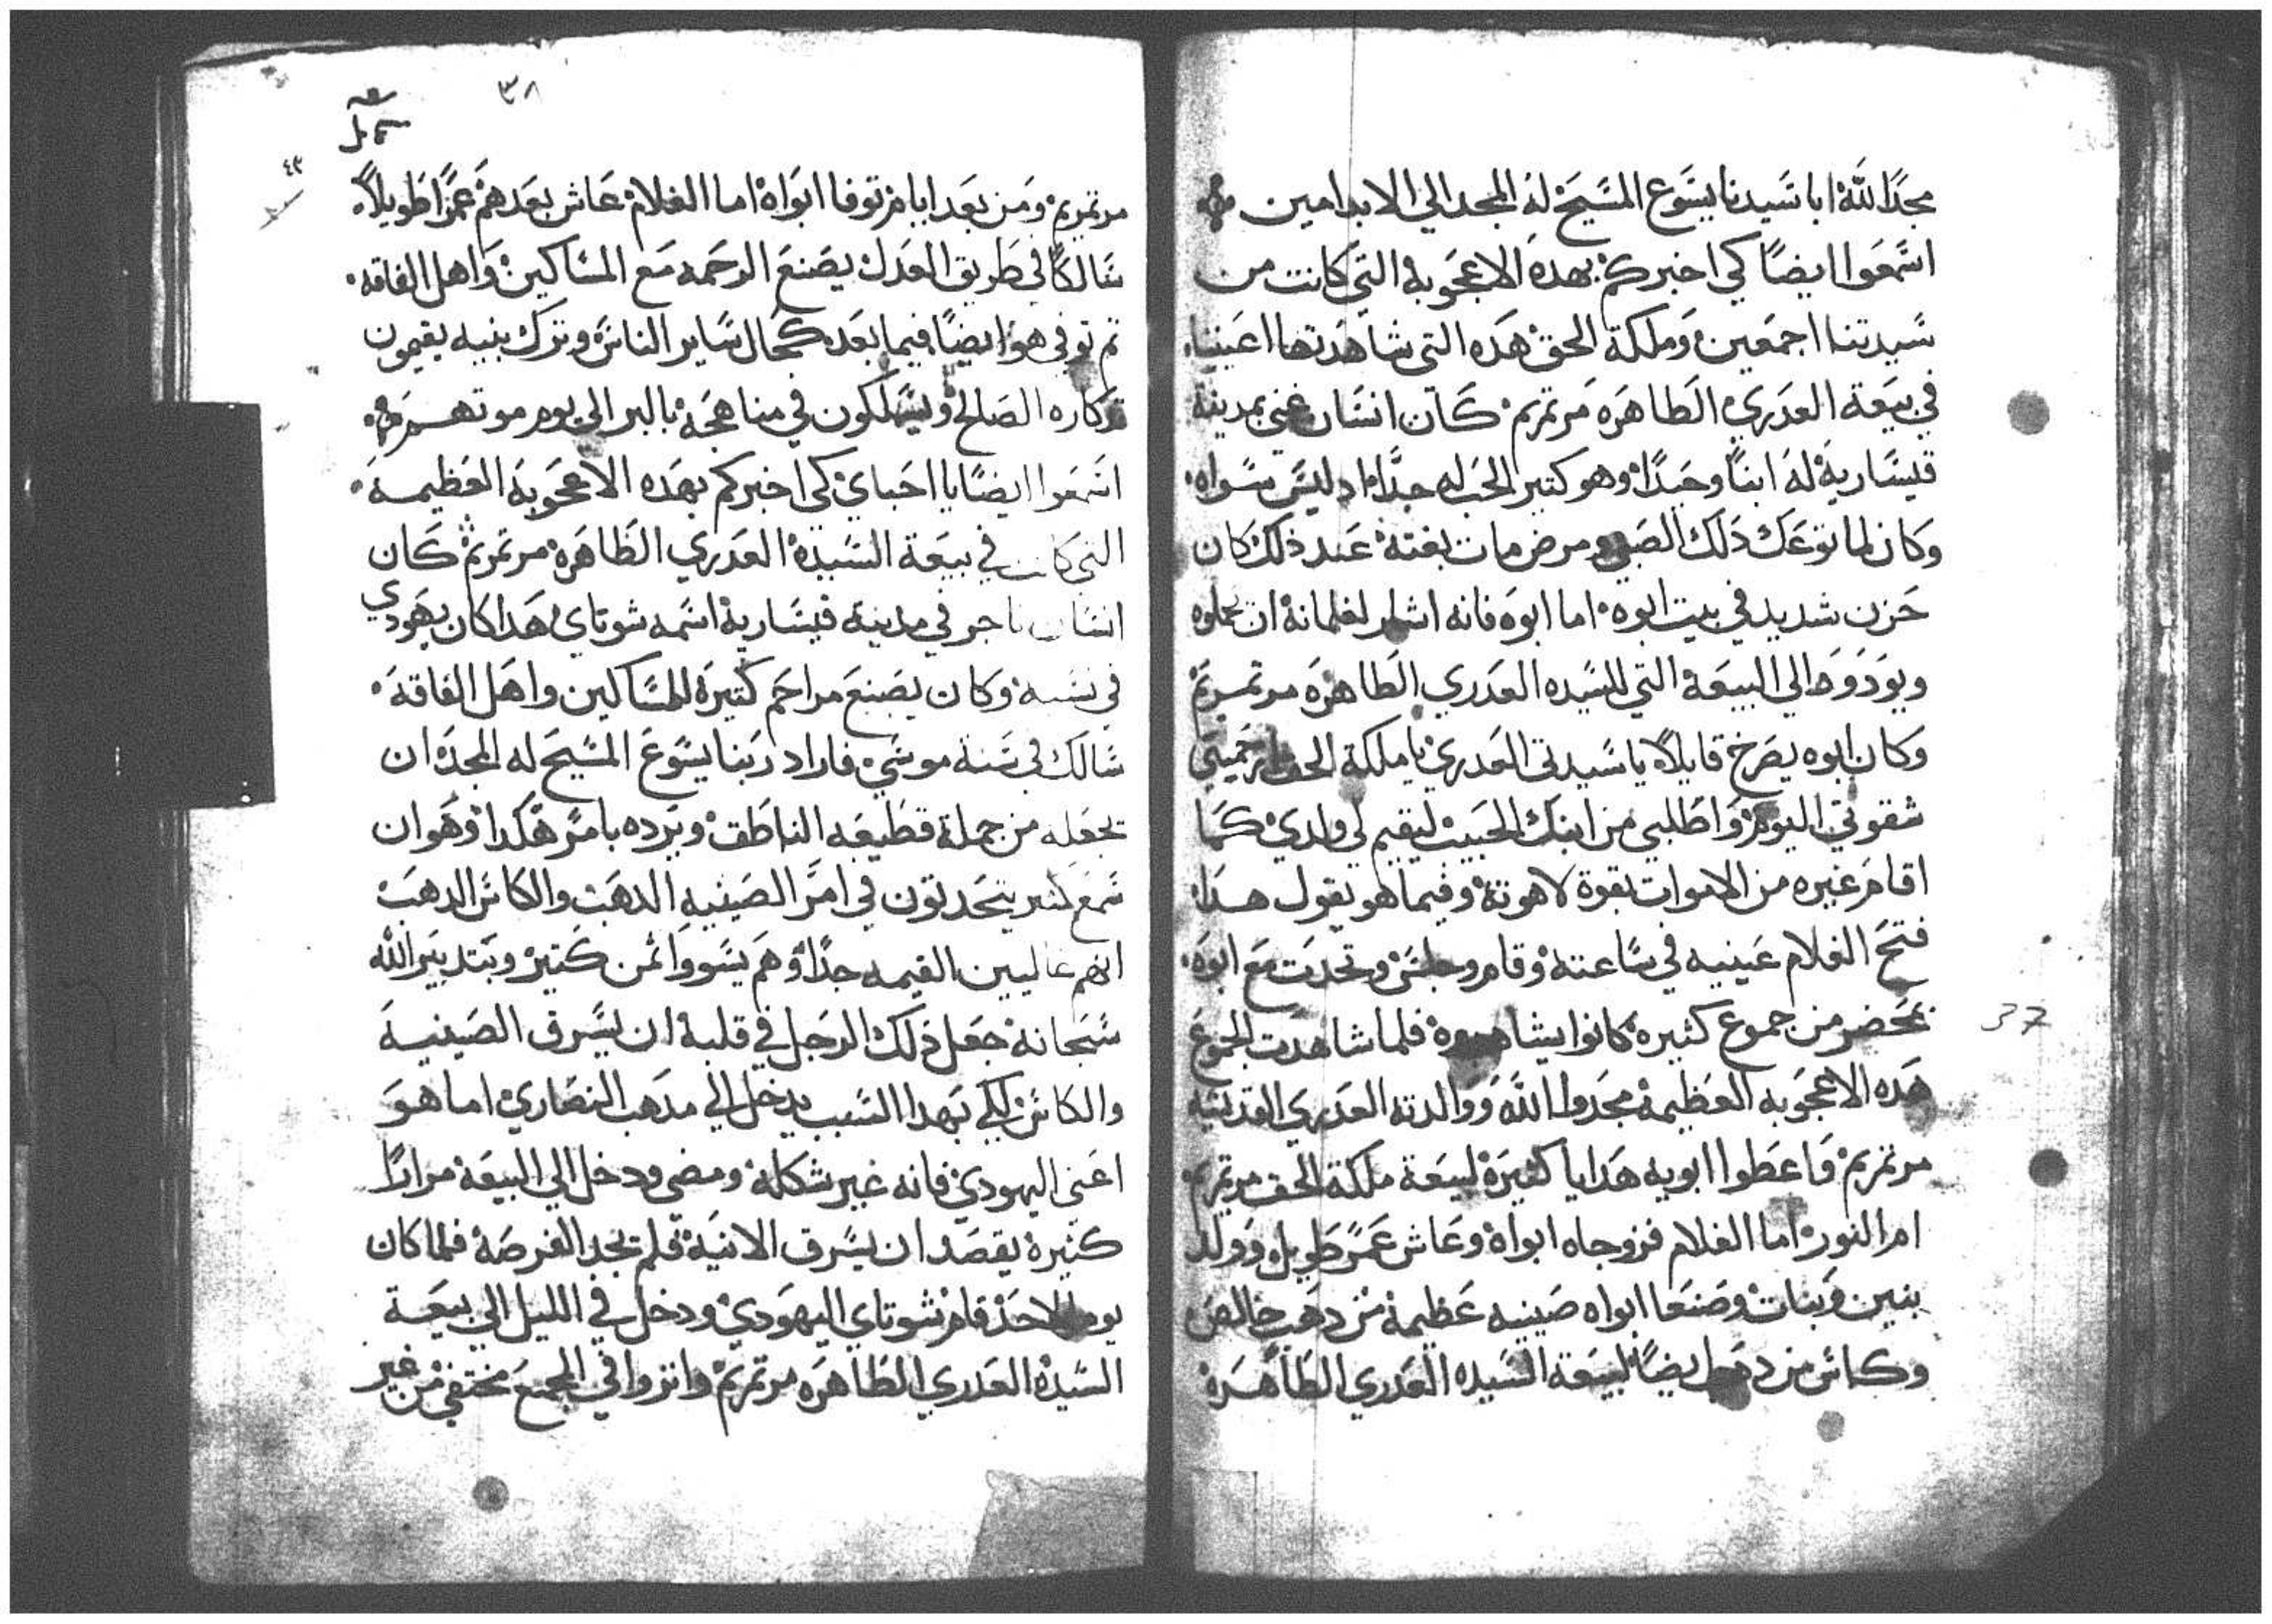 مجدًا لله ابا سيدنا يسوع المسيح له المجد الي الابد امين
اسمعوا ايضًا كي اخبركم بهده الاعجوبه التي كانت من
سيدتنا اجمعين وملكة الحق هده التي شاهدتها اعيننا
في بيعة العدري الطاهره مرتمريم كان انسان غني بمدينة
قيسارية له ابنًا وحيدًا وهو كتير الحب له جدًا اد ليس سواه
وكان لما توعك دلك الصبي ومرض مات بغتة عند ذلك كان
حزن شديد في بيت ابوه اما ابوه فانه اشار لغلمانة ان يحملوه
ويودوه الي البيعة التي للسيده العدري الطاهره مرتمريم
وكان ابوه يصرخ قايلاً يا سيدتي العدري يا ملكة الحق
شقوتي اليوم واطلبي من ابنك الحبيب ليقيم لي ولدي كما
اقام غيره من الاموات بقوة لاهوتة وفيما هو يقول هدا
فتح الغلام عينيه في ساعتة وقام وجلس وتحدت مع ابوه
بمحضر من جموع كثيره كانوا فلما شاهدت الجموع
هده الاعجوبه العظيمة مجدوا الله ووالدته العدري القديسه
مرتمريم واعطوا ابويه هدايا كثيرة لبيعة ملكة الحق مرتمريم
ام النور اما الغلام فزوجاه ابواه وعاش عمر طويل وولد
بنين وبنات وصنعا ابواه صينيه عظيمة من دهب خالص
وكاس من دهب ايضًا لبيعة السيده العدري الطاهرة
37
٣٨
٤٣
مرتمريم ومن بعد ايام توفا ابواه اما الغلام عاش بعدهم عمرًا طويلاً
سالكًا في طريق العدل يصنع الرحمه مع المساكين واهل الفاقه
تم توفي هو ايضًا فيما بعد كحال ساير الناس وترك بنيه يقيمون
تدكاره الصالح ويسلكون في مناهجه بالبر الي يوم موتهم
اسمعوا ايضًا يا احباي كي اخبركم بهده الاعجوبة العظيمة
التي كانت في بيعة السيدة العدري الطاهره مرتمريم كان
انسان تاجر في مدينة قيسارية اسمه شوتاي هدا كان يهودي
في نسبه وكان يصنع مراحم كتيرة للمساكين واهل الفاقة
سالك في سنة موسي فاراد ربنا يسوع المسيح له المجد ان
يجعله من جملة قطيعه الناطق ويرده بامر هكدا وهو ان
سمع يتحدتون في امر الصينيه الدهب والكاس الدهب
انهم غاليين القيمه جدًا وهم يسووا تمن كتير وبتدبير الله
سبحانه جعل دلك الرجل في قلبة ان يسرق الصينية
والكاس لكي بهدا السبب يدخل الي مدهب النصاري اما هو
اعني اليهودي فانه غير شكلة ومضي ودخل الي البيعة مرارًا
كثيرة يقصد ان يسرق الانية فلم يجد الفرصة فلما كان
يوم الاحد قام شوتاي اليهودي ودخل في الليل الي بيعة
السيدة العدري الطاهره مرتمريم وانزوا في المجمع مختفي من غير